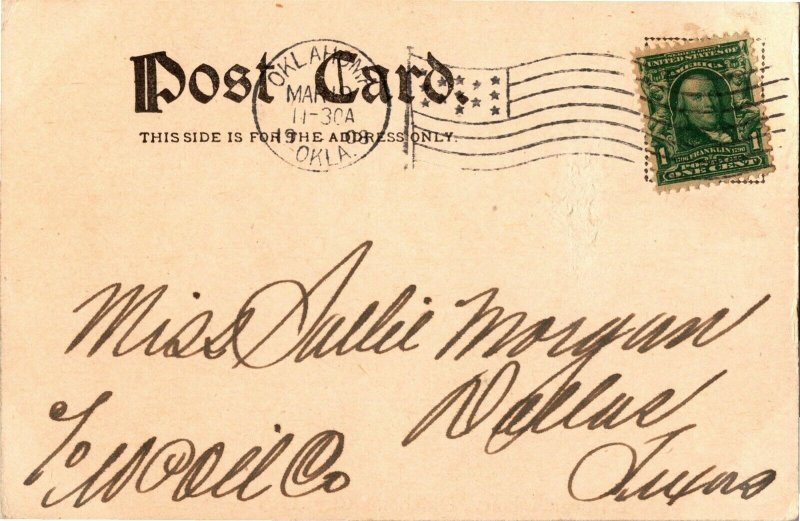 Post Card.
THIS SIDE IS FOR THE ADDRESS ONLY.
OKLAHOMA
MAR
11-30A
19 08
OKLA.
UNITED STATES OF
AMERICA
FRANKLIN
1 1
ONE CENT
Miss Sallie Morgan
Dallas
Texas
Oil Co